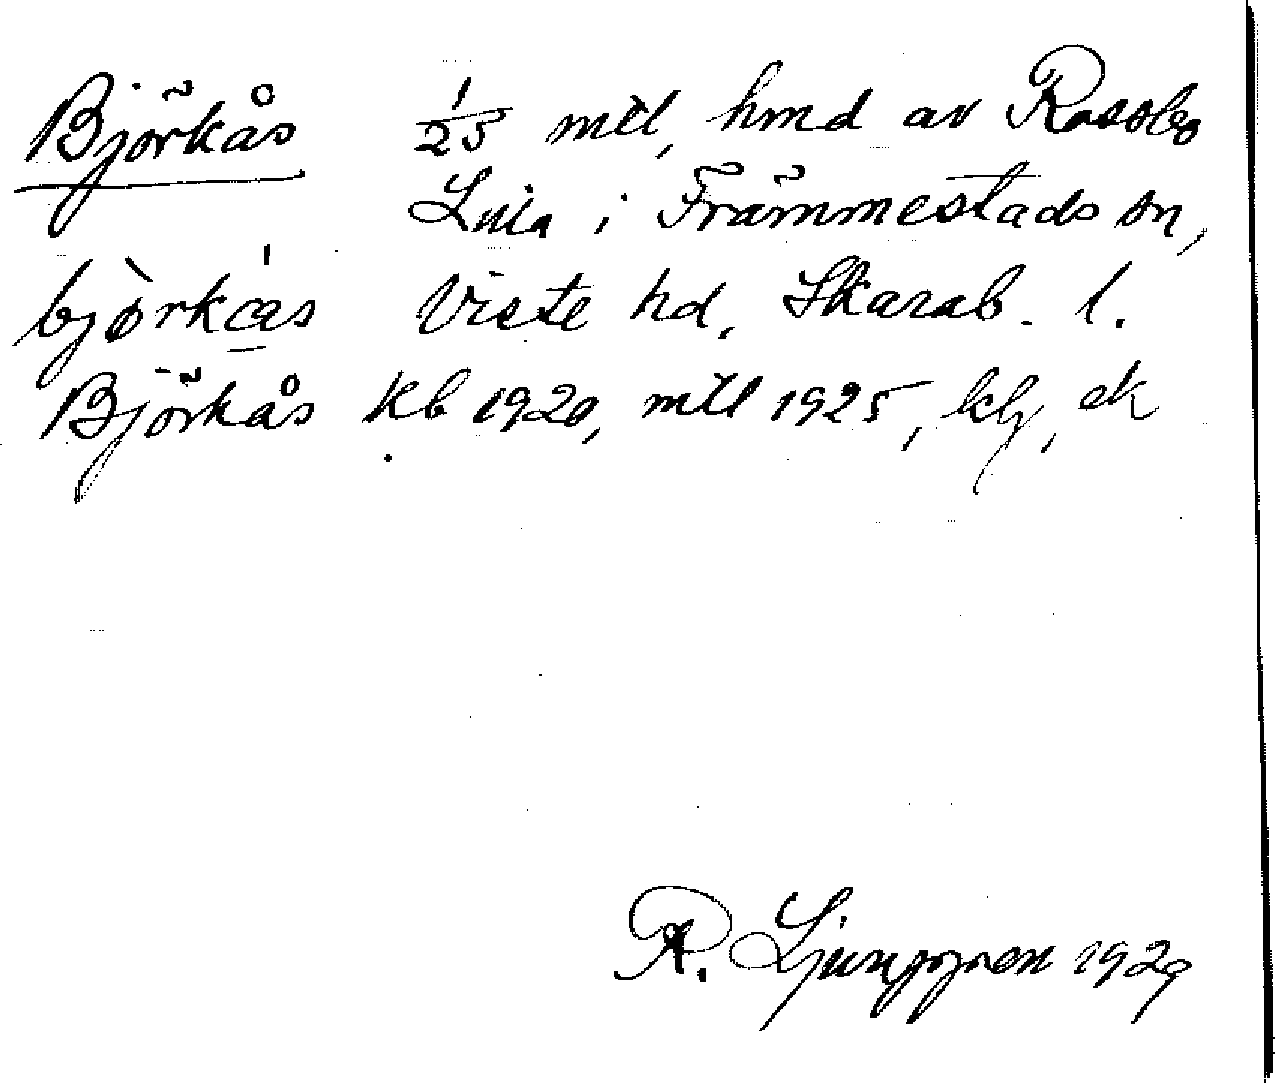 Björkås 1/25 mtl, hmd av Rossbo
Lilla i Främmestads sn,
bjòrkás Viste hd, Skarab. l.
Björkås kb 1920, mtl 1925, klj, ek
R. Ljunggren 1929